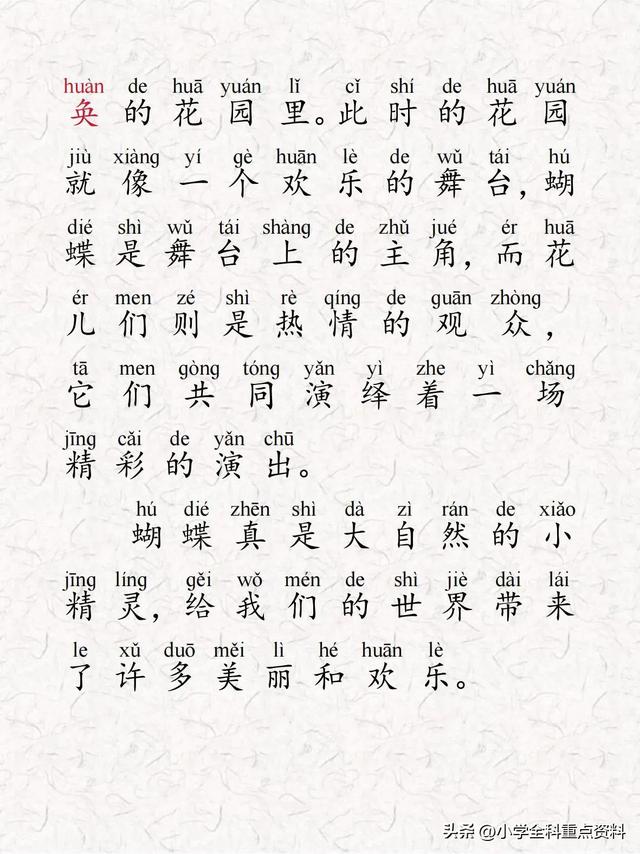 huàn de huā yuán lǐ cǐ shí de huā yuán
奂的花园里。此时的花园
jiù xiàng yí gè huān lè de wǔ tái hú
就像一个欢乐的舞台,蝴
dié shì wǔ tái shàng de zhǔ jué ér huā
蝶是舞台上的主角,而花
ér men zé shì rè qíng de guān zhòng
儿们则是热情的观众,
tā men gòng tóng yǎn yì zhe yì chǎng
它们共同演绎着一场
jīng cǎi de yǎn chū
精彩的演出。
hú dié zhēn shì dà zì rán de xiǎo
蝴蝶真是大自然的小
jīng líng gěi wǒ mén de shì jiè dài lái
精灵,给我们的世界带来
le xǔ duō měi lì hé huān lè
了许多美丽和欢乐。
头条 @小学全科重点资料